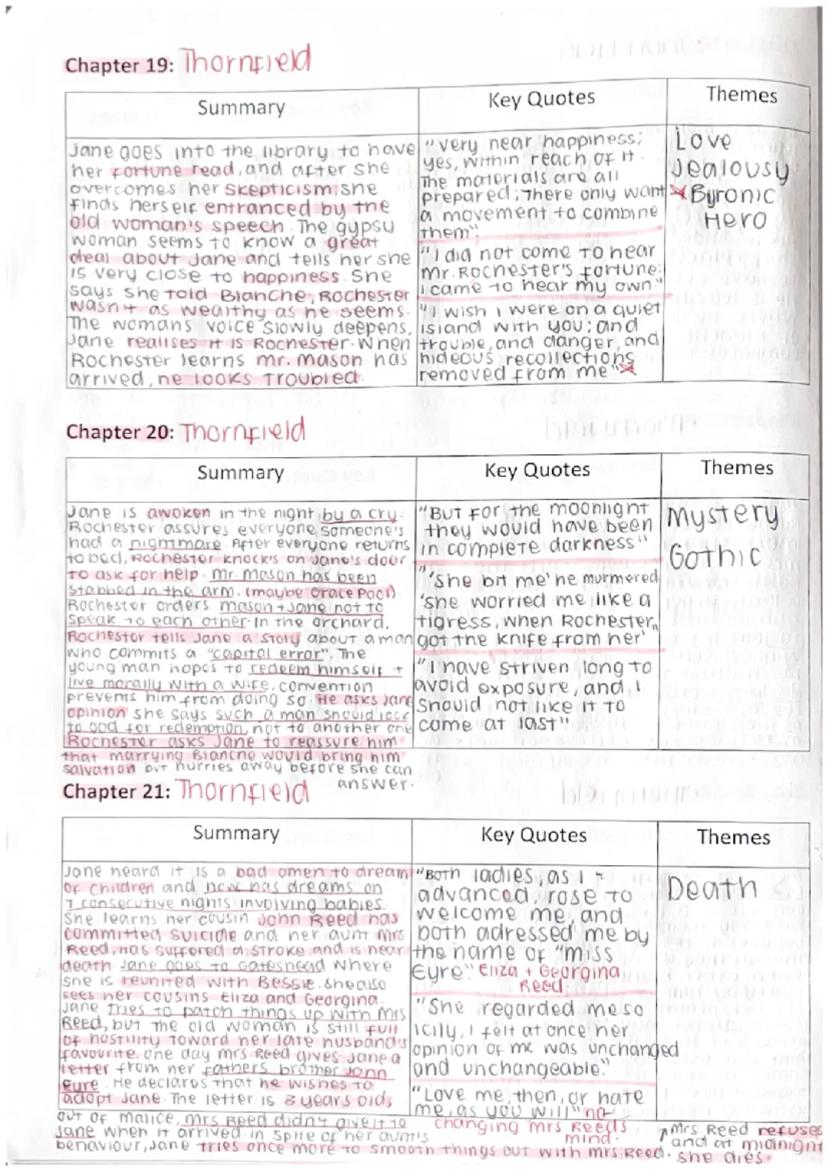 Chapter 19: Thornfield
Summary
Key Quotes
Themes
Jane goes into the library to have
her fortune read, and after she
overcomes her skepticism she
finds herself entranced by the
old woman's speech. The gypsy
woman seems to know a great
deal about Jane and tells her she
is very close to happiness. She
says she told Blanche, Rochester
wasn't as wealthy as he seems.
The womans voice slowly deepens,
Jane realises it is Rochester. When
Rochester learns mr. mason has
arrived, he looks troubled.
"very near happiness;
yes, within reach of it.
The materials are all
prepared; There only want
a movement to combine
them"
"I did not come to hear
Mr. Rochester's fortune;
I came to hear my own"
"I wish I were on a quiet
island with you; and
trouble, and danger, and
hideous recollections
removed from me"
Love
Jealousy
Byronic
Hero
Chapter 20: Thornfield
Summary
Key Quotes
Themes
Jane is awoken in the night by a cry.
Rochester assures everyone someone's
had a nightmare. After everyone returns
to bed, Rochester knocks on Jane's door
to ask for help. Mr. Mason has been
stabbed in the arm. (maybe Grace Pool)
Rochester orders mason + Jane not to
speak to each other. In the orchard,
Rochester tells Jane a story about a man
who commits a "capital error". The
young man hopes to redeem himself +
live morally with a wife, convention
prevents him from doing so. He asks Jane
opinion she says such a man should look
to God for redemption, not to another one
Rochester asks Jane to reassure him
that marrying Blanche would bring him
salvation but hurries away before she can
answer.
"But for the moonlight
they would have been
in complete darkness"
"'She bit me' he murmered
'she worried me like a
tigress, when Rochester
got the knife from her'"
"I have striven long to
avoid exposure, and I
should not like it to
come at last"
Mystery
Gothic
Chapter 21: Thornfield
Summary
Key Quotes
Themes
Jane heard it is a bad omen to dream
of children and now has dreams on
7 consecutive nights involving babies.
She learns her cousin John Reed has
committed suicide and her aunt Mrs
Reed, has suffered a stroke and is near
death Jane goes to Gateshead where
she is reunited with Bessie. She also
sees her cousins Eliza and Georgina.
Jane tries to patch things up with Mrs
Reed, but the old woman is still full
of hostility toward her late husband's
favourite. one day mrs Reed gives Jane a
letter from her fathers brother John
Eyre. He declares that he wishes to
adopt Jane. The letter is 3 years old,
out of malice, Mrs Reed didn't give it to
Jane when it arrived in spite of her aunt's
behaviour, Jane tries once more to smooth things out with mrs Reed.
"Both ladies, as I
advanced, rose to
welcome me, and
both adressed me by
the name of "miss
Eyre". Eliza + Georgina
Reed.
"She regarded me so
icily, I felt at once her
opinion of me was unchanged
and unchangeable."
"Love me, then, or hate
me, as you will" no
changing mrs Reeds
mind.
Death
Mrs Reed refuses
and at midnight
she dies.